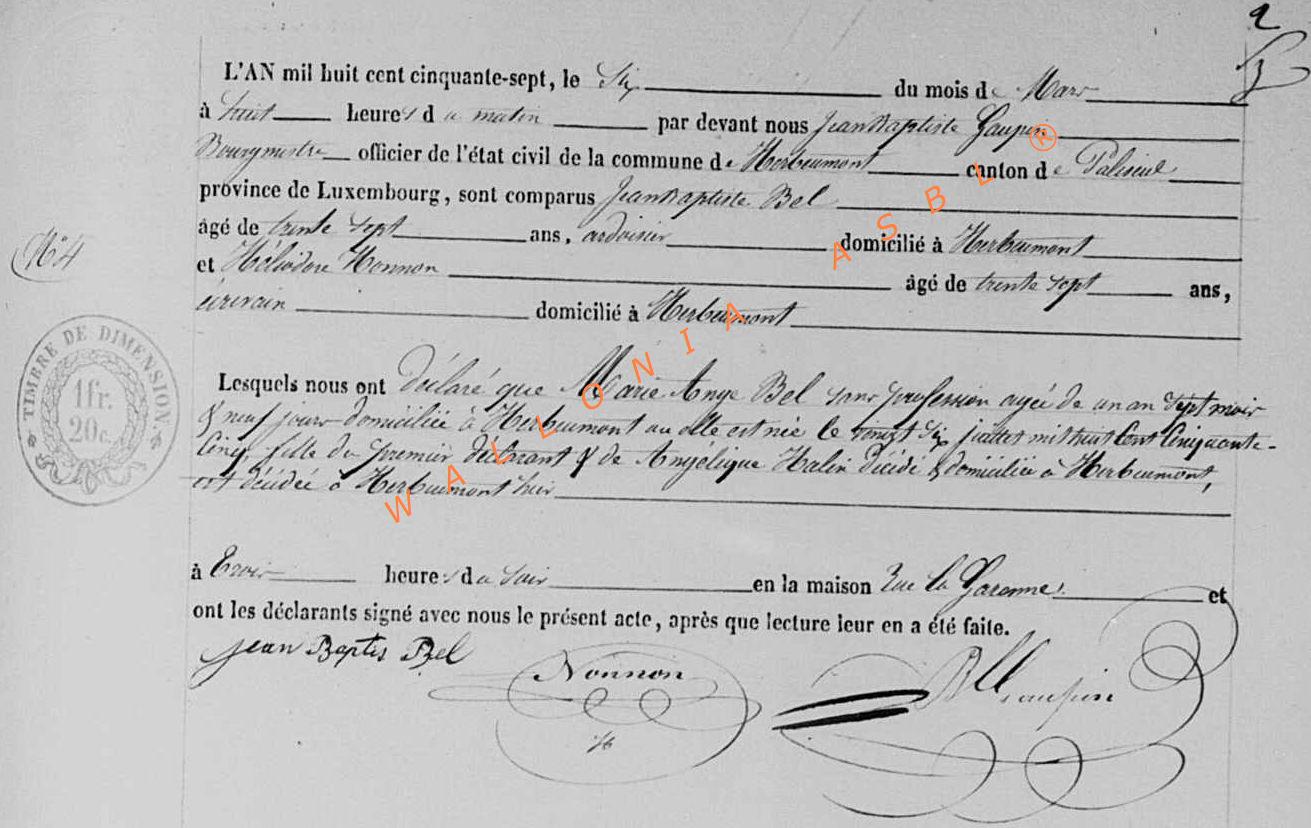 2
L'AN mil huit cent cinquante-sept, le Six du mois de Mars
à huit heures du matin par devant nous Jean Baptiste Gaupin
Bourgmestre officier de l'état civil de la commune de Herbeumont canton de Paliseul
province de Luxembourg, sont comparus Jean Baptiste Bel
âgé de trente sept ans, ardoisier domicilié à Herbeumont
et Héliodore Nonnon âgé de trente sept ans,
écrivain domicilié à Herbeumont
N° 4
TIMBRE DE DIMENSION
1fr.
20c.
Lesquels nous ont déclaré que Marie Ange Bel sans profession agée de un an sept mois
& neuf jours domiciliée à Herbeumont ou elle est née le vingt six juillet mil huit Cent Cinquante-
Cinq fille du premier déclarant & de Angelique Halin décédé & domiciliée à Herbeumont,
est décédée à Herbeumont hier
à trois heures du soir en la maison Rue la Garenne et
ont les déclarants signé avec nous le présent acte, après que lecture leur en a été faite.
Jean Baptis Bel Nonnon JB Gaupin
WALLONIA ASBL ®